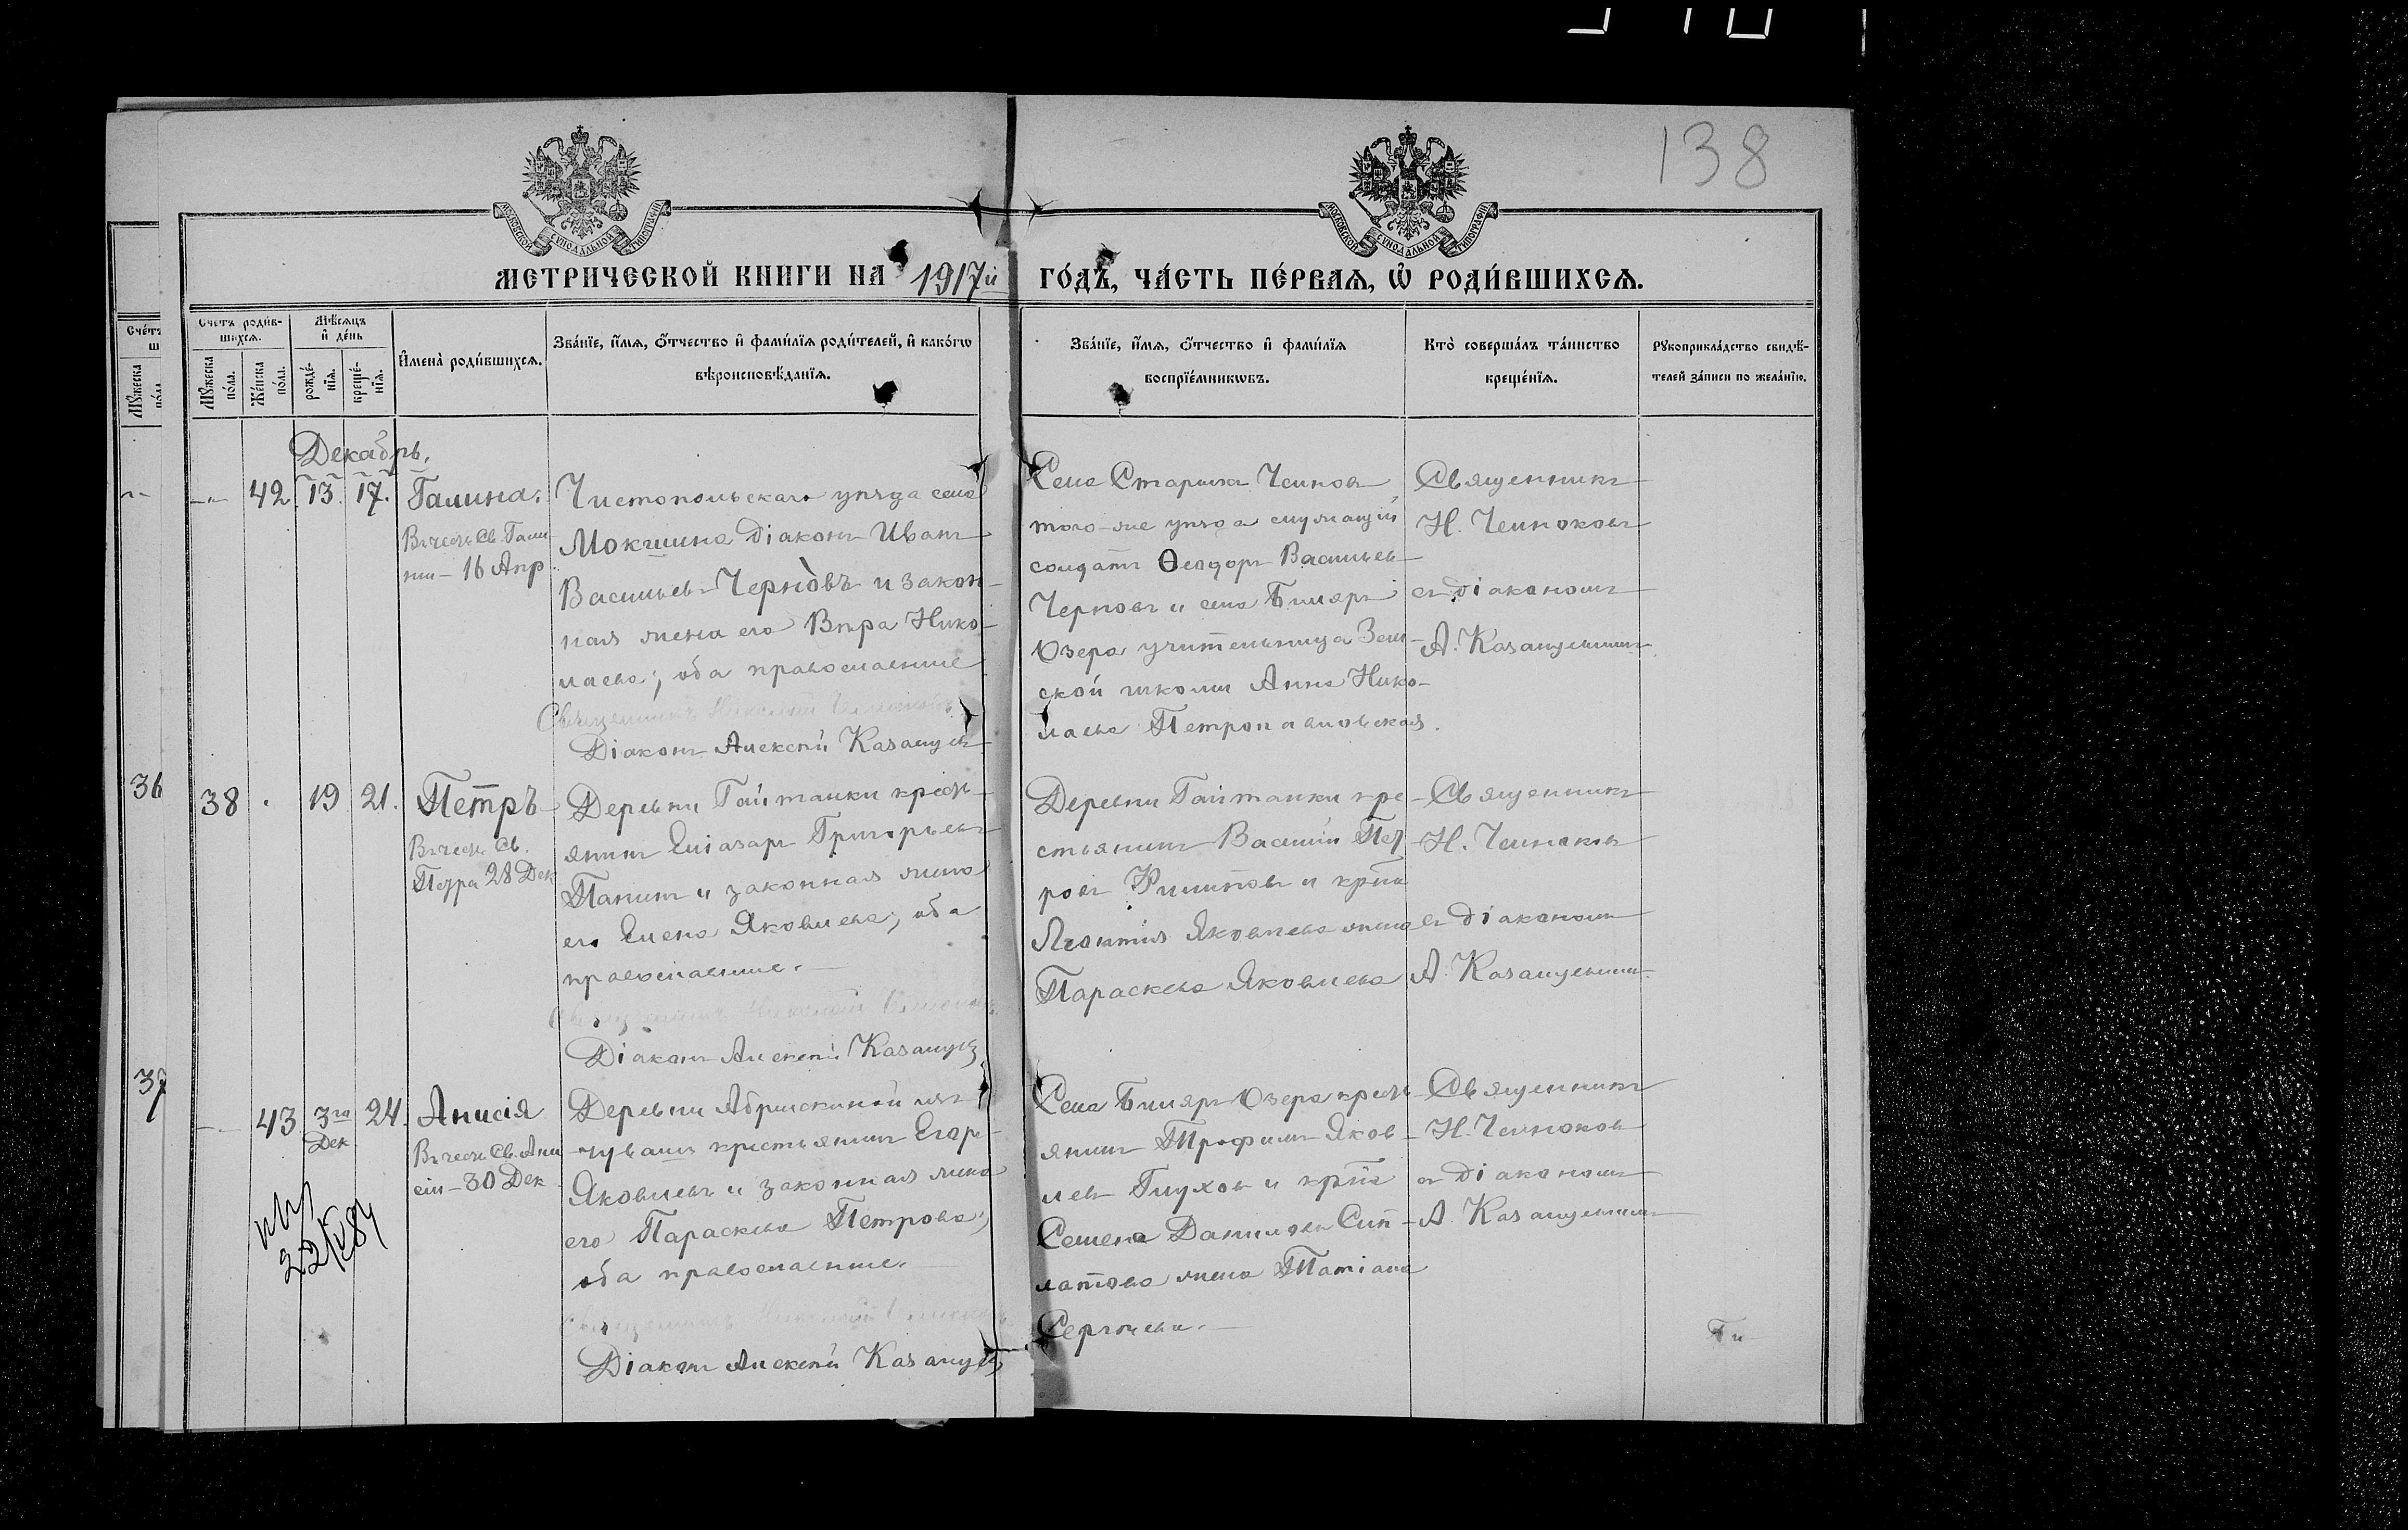 138
МОСКОВСКОЙ СУНОДАЛЬНОЙ ТИПОГРАФІИ
МОСКОВСКОЙ СУНОДАЛЬНОЙ ТИПОГРАФІИ
МЕТРИЧЕСКОЙ КНИГИ НА 1917й ГО́ДЪ, ЧА́СТЬ ПЕ́РВАѦ, Ѡ҆ РОДИ́ВШИХСѦ.
Счетъ роди́в-
шихсѧ.
Мѣ́сѧцъ
и҆ де́нь
Мꙋ́жеска
по́ла.
Же́нска
по́ла.
рожде́-
нїѧ.
креще́-
нїѧ.
И҆мена̀ роди́вшихсѧ.
Зва́нїе, и҆́мѧ, ѻ҆́тчество и҆ фами́лїѧ роди́телей, и҆ како́гѡ
вѣроисповѣ́данїѧ.
Зва́нїе, и҆́мѧ, ѻ҆́тчество и҆ фами́лїѧ
воспрїе́мникѡвъ.
Кто̀ соверша́лъ та́инство
креще́нїѧ.
Рꙋкоприкла́дство свидѣ́-
телей за́писи по жела́нїю.
Счетъ
ш
Мꙋ́жеска
по́ла
36
37
Декабрь.
42. 13. 17.
Галина.
Въ честь Св. Гали
ни – 16 Апр
Чистопольскаго уѣзда села
Мокшина Діаконъ Иванъ
Васильевъ Черновъ и закон-
ная жена его Вѣра Нико-
лаева; оба православные
Священникъ Николай Челноковъ
Діаконъ Алексѣй Казанцевъ
Села Стариха Челнов
того-же уѣзда служащій
солдатъ Ѳеодоръ Васильев
Черновъ и села Биляръ
Озера учительница Зем-
ской школы Анна Нико-
лаева Петропавловская.
Священникъ
Н. Челноковъ
съ діакономъ
А. Казанцевымъ
38 19 21.
Петръ
Въ честь Св.
Петра 28 Дек
Деревни Гайтанки кресть-
янинъ Еліазаръ Григорьевъ
Панинъ и законная жена
его Елена Яковлева; оба
православные.
Священникъ Николай Челноковъ
Діаконъ Алексѣй Казанцев
Деревни Гайтанки кре-
стьянинъ Василій Пет
ровъ Филиповъ и крⷭ҇т
Яковлева жена
Параскева Яковлева
Священникъ
Н. Челноковъ
съ діакономъ
А. Казанцевымъ
43 3го Дек 24.
Анисія
Въ честь Св. Ани
сіи – 30 Дек
Деревни Абрыскиной изъ
чувашъ крестьянинъ Егоръ
Яковлевъ и законная жена
его Параскева Петрова;
оба православные.
Священникъ Николай Челноковъ
Діаконъ Алексѣй Казанцев
Села Биляръ Озера кресть
янинъ Трофимъ Яков-
левъ Глуховъ и
Семена Данилова Сип-
латова жена Татіана
Сергѣева.
Священникъ
Н. Челноковъ
съ діакономъ
А. Казанцевымъ